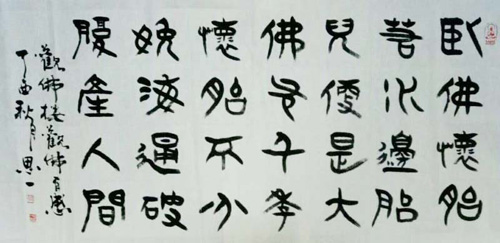 臥佛懷胎
水邊胎
兒便是大
佛千年
懷胎不分
娩海通破
腹產人間
觀佛樓觀佛有感
丁酉秋月思一